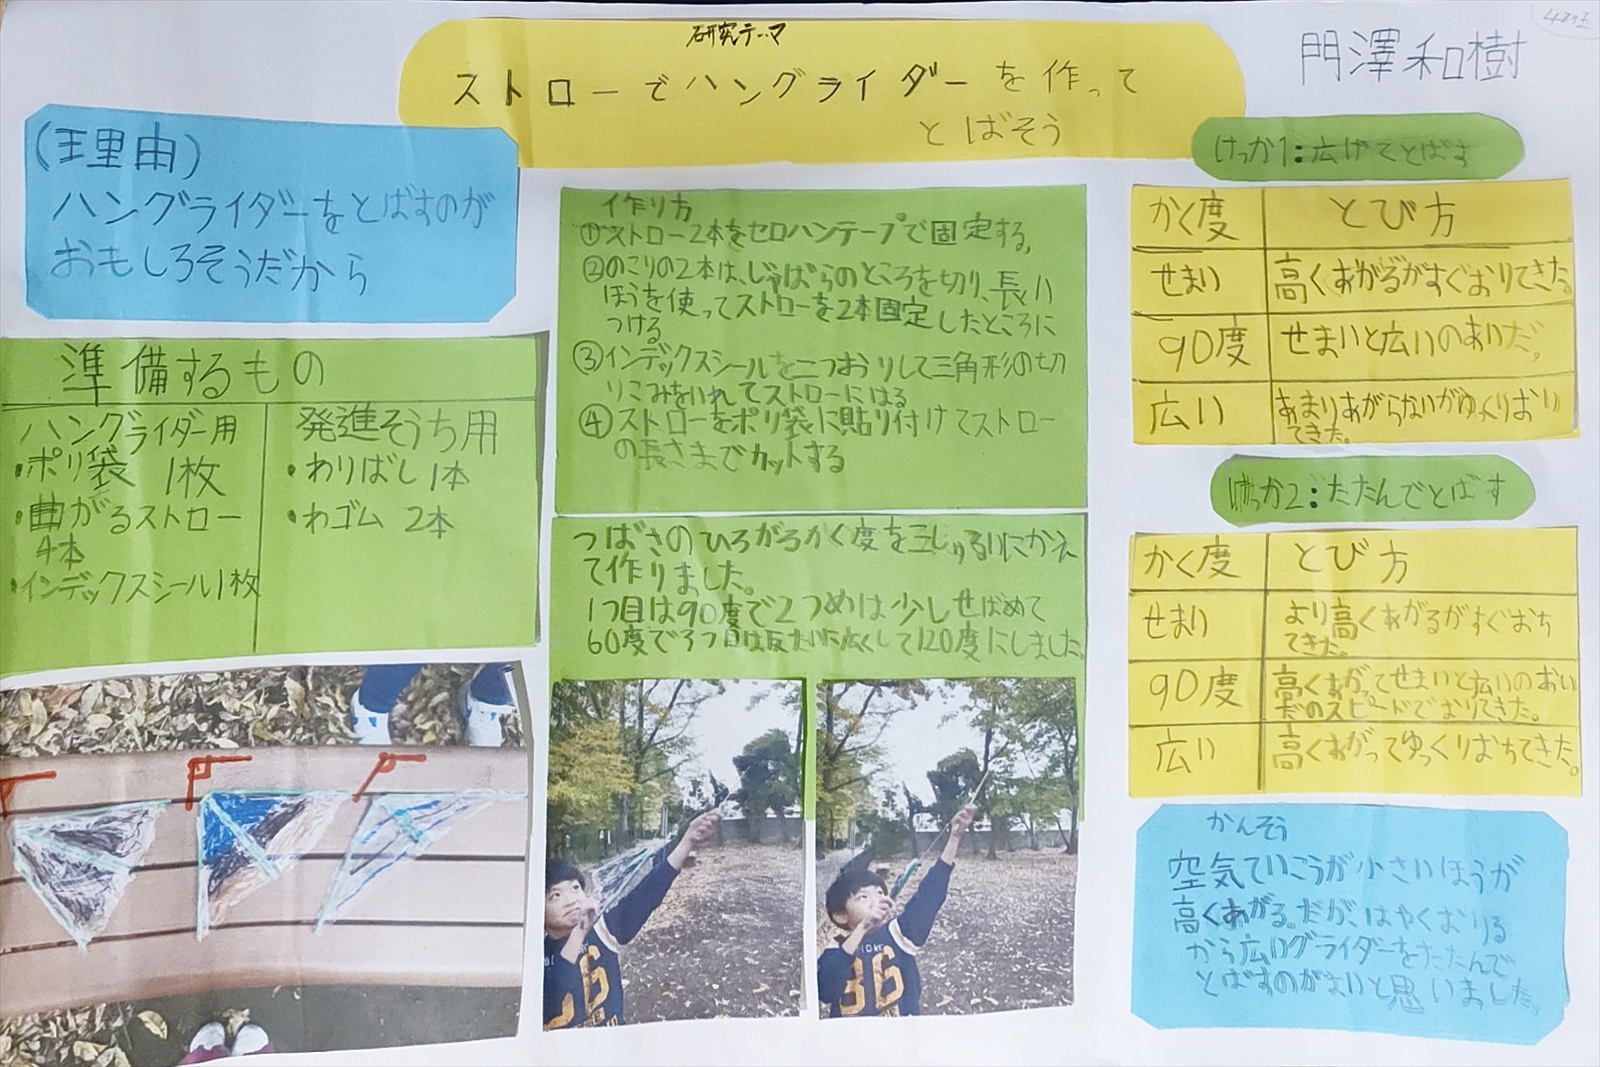 研究テーマ
ストローでハングライダーを作って
とばそう
門澤和樹
(理由)
ハングライダーをとばすのが
おもしろそうだから
準備するもの
ハングライダー用
・ポリ袋 1枚
・曲がるストロー
4本
・インデックスシール1枚
発進そうち用
・わりばし1本
・わゴム 2本
作り方
①ストロー2本をセロハンテープで固定する,
②のこりの2本は、じゃばらのところを切り、長い
ほうを使ってストローを2本固定したところに
つける
③インデックスシールを二つおりして三角形の切
りこみをいれてストローにはる
④ストローをポリ袋に貼り付けてストロー
の長さまでカットする
つばさのひろがるかく度を三しゅるいにかえ
て作りました。
1つ目は90度で2つめは少しせばめて
60度で3つ目は反たいに広くして120度にしました。
けっか1:広げてとばす
かく度 とび方
せまい 高くあがるがすぐおりてきた。
90度 せまいと広いのあいだ。
広い あまりあがらないがゆっくりおり
てきた。
けっか2:たたんでとばす
かく度 とび方
せまい より高くあがるがすぐおち
てきた。
90度 高くあがってせまいと広いのあい
だのスピードでおりてきた。
広い 高くあがってゆっくりおちてきた。
かんそう
空気ていこうが小さいほうが
高くあがる。だが、はやくおりる
から広いグライダーをたたんで
とばすのがよいと思いました。
36